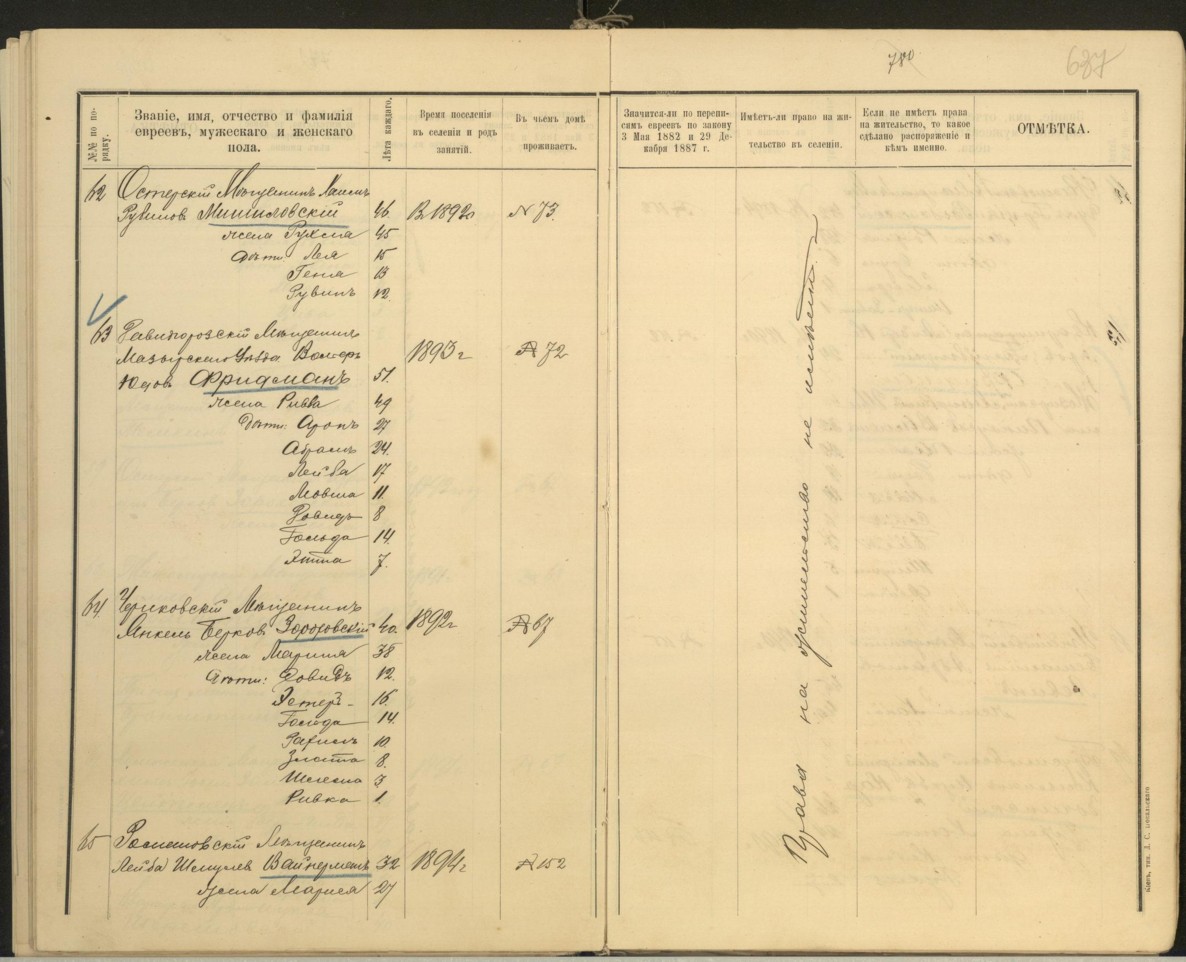 780
637
№№ по порядку.
Званіе, имя, отчество и фамилія
евреевъ, мужескаго и женскаго
пола.
Лѣта каждаго.
Время поселенія
въ селеніи и родъ
занятій.
Въ чьемъ домѣ
проживаетъ.
Значится-ли по перепи-
симъ евреевъ по закону
3 Мая 1882 и 29 Де-
кабря 1887 г.
Имѣетъ-ли право на жи-
тельство въ селеніи.
Если не имѣетъ права
на жительство, то какое
сдѣлано распоряженіе и
кѣмъ именно.
ОТМѢТКА.
62 Остерскій Мѣщанинъ Хаимъ
Рувиновъ 46 В 1892 г № 73.
жена Рухля 45
дѣти: Лея 15
Геня 13
Рувинъ 12
63 Мѣщанинъ
Мазырскаго Уѣзда 1893 г № 72
Юдовъ Фридманъ 51
жена Ривва 49
Дѣти: Аронъ 27
Абрамъ 24
Лейба 17
Мовша 11
Довидъ 8
Гольда 14
Этта 7
64 Чериковскій Мѣщанинъ
Янкель Берковъ 40 1892 г № 67
жена Марьяя 38
Дѣти: Довидъ 12
Эстеръ 16
Гольда 14
Рахиль 10
Злота 8
3
Ривка 1
65 Мѣщанинъ
Лейба Шмулевъ Вайнерманъ 32 1894 г № 152
жена Марися 27
Права на жительство не имѣетъ.
Кіевъ, тип.